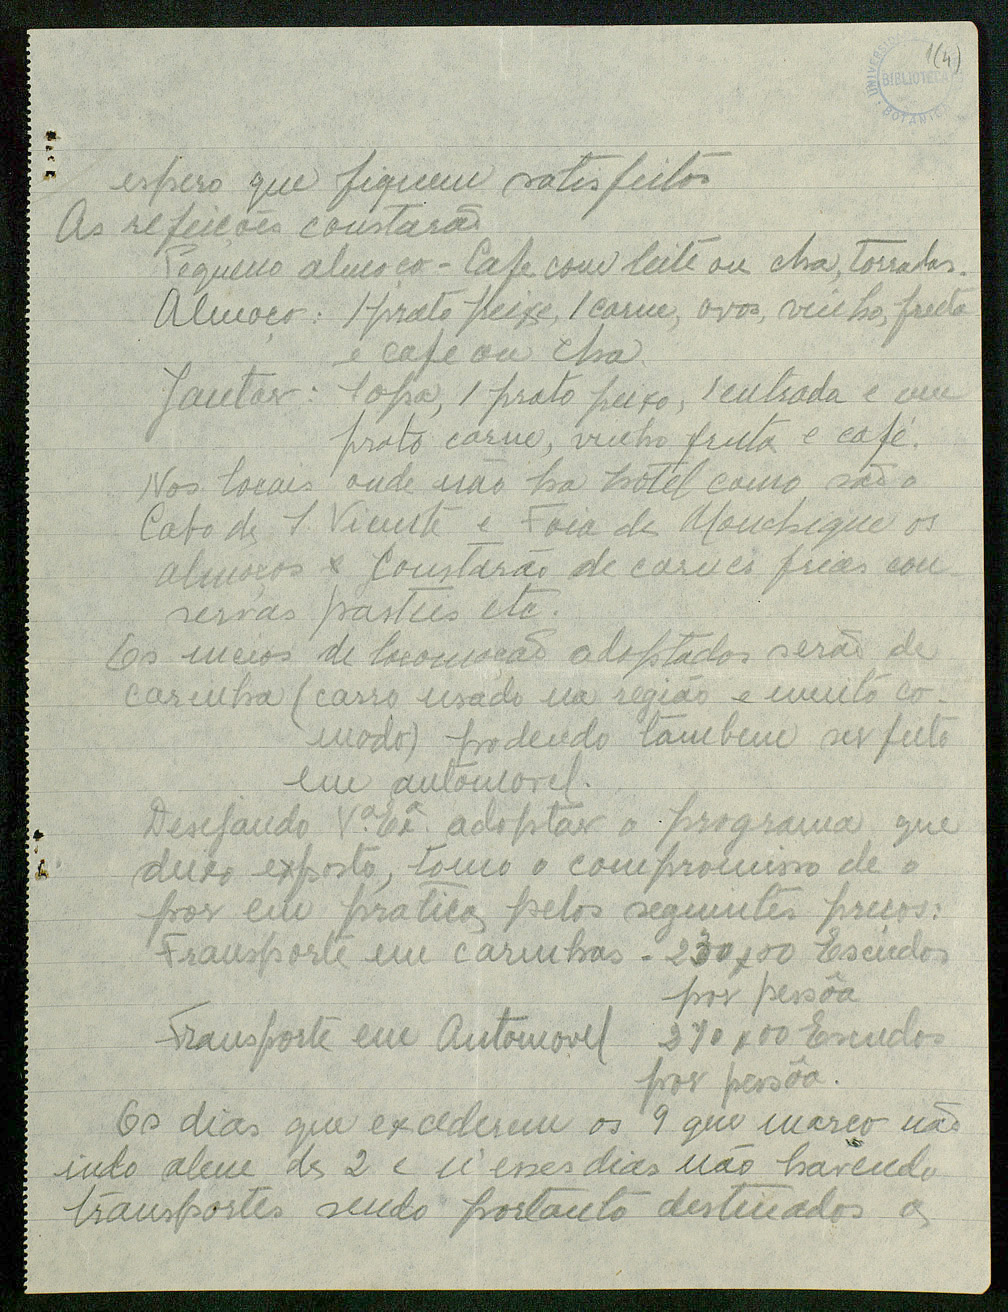 1(4)
UNIVERSID
BIBLIOTECA
BOTANIC
espero que fiquem satisfeitos
As refeições constarão
Pequeno almoço - Cafe com leite ou cha, torradas.
Almoço: 1 prato peixe, 1 carne, ovos, vinho, fruta
e cafe ou cha
Jantar: Sopa, 1 prato peixe, 1 entrada e um
prato carne, vinho fruta e café.
Nos locais onde não ha hotel como são o
Cabo de S. Vicente e Foia de Monchique os
almoços constarão de carnes frias con
servas pasteis etc.
Os meios de locomoção adoptados serão de
carinha (carro usado na região e muito co-
modo) podendo tambem ser feito
em automovel.
Desejando V.ª Ex.ª adoptar o programa que
deixo exposto, tomo o compromisso de o
por em pratica, pelos seguintes preços:
Transporte em carinhas - 230$00 Escudos
por pessôa
Transporte em Automovel 270$00 Escudos
por pessôa.
Os dias que excederem os 9 que marco não
indo alem de 2 e n'esses dias não havendo
transportes sendo portanto destinados a